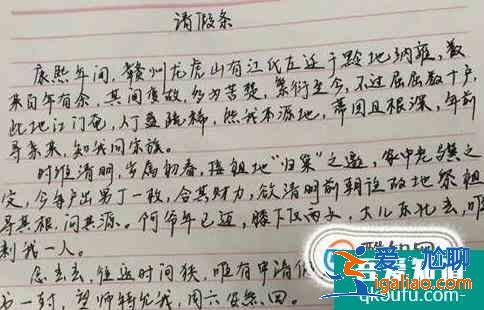 请假条
康熙年间，赣州龙虎山有江氏左迁于黔地纳雍，数
来百年有余，其间变故，多为苦楚，繁衍至今，不过屈屈数十户，
此地江门奄，人丁亦稀，然我本源地，蒂固且根深，年前
寻亲来，知我同宗族。
时值清明，岁属初春，接祖地“归宗”之邀，家中老
定，今每户出男丁一枚，合其财力，欲清明前朝往故地祭祖
寻其根，问其源。何爷年已迈，膝下仅两女，大儿东北去，唯
剩我一人。
念去去，往返时间狭，唯有申请
书一封，望师特允我，周六 回。
qksufu.com